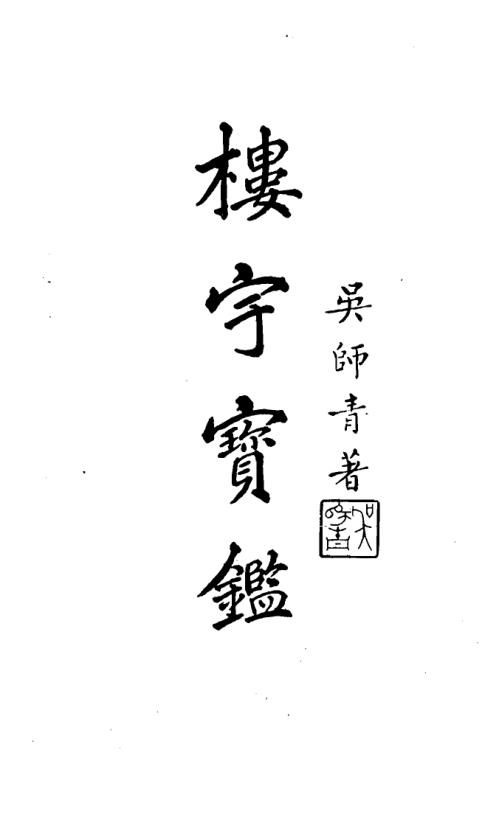 樓宇寶鑑
吳師青著